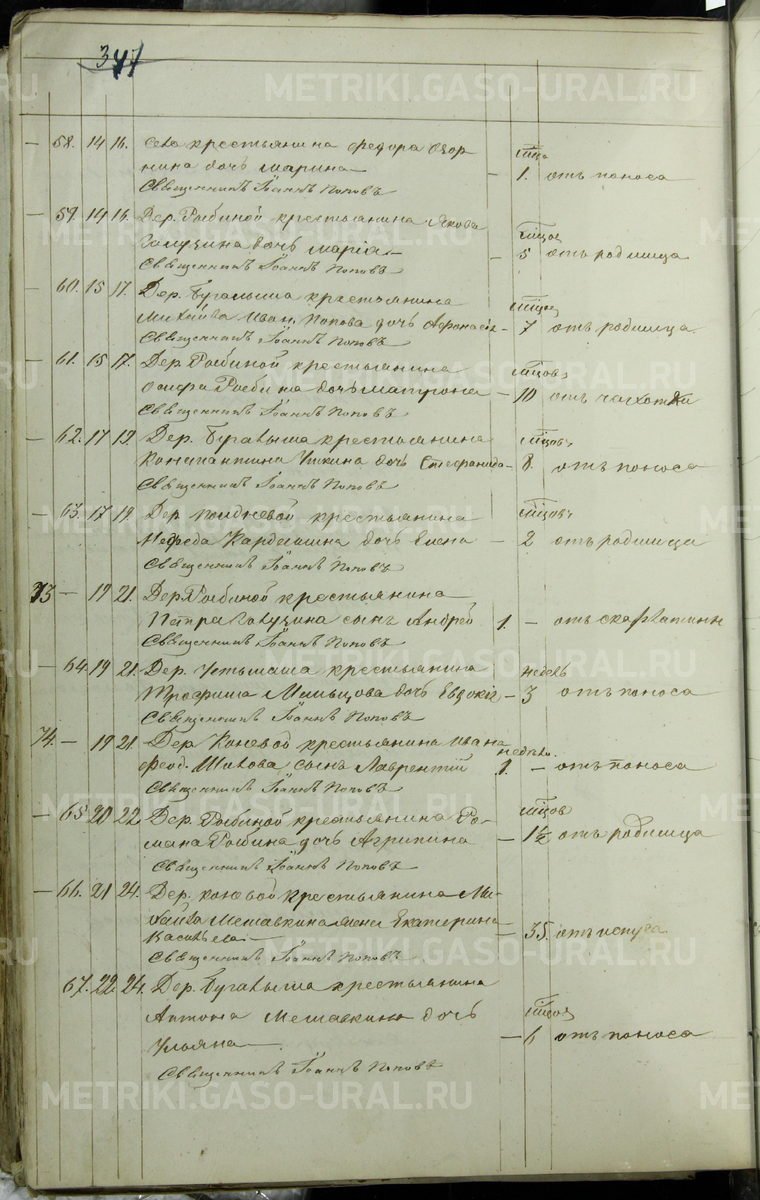 347
58. 14 16. Села крестьянина Федора Озор
нина дочь Марина — мца
— 1. отъ поноса
Священникъ Іоаннъ Поповъ
59. 14 16. Дер. Рыбиной крестьянина Якова
дочь Марія — мцов
5 отъ родимца
Священникъ Іоаннъ Поповъ
60. 15 17. Дер. Бугалыша крестьянина
Михайла Иван. Попова дочь Афанасія мцов
— 7 отъ родимца
Священникъ Іоаннъ Поповъ
61. 15 17. Дер. Рыбиной крестьянина
Осифа Рыбина дочь Матрона мцовъ
— 10 отъ чахотки
Священникъ Іоаннъ Поповъ
62. 17 19 Дер. Бугалыша крестьянина
Константина Упкина дочь Стефанида мцовъ
— 8. отъ поноса
Священникъ Іоаннъ Поповъ
63. 17 19. Дер. крестьянина
Нефеда дочь Елена мцовъ
— 2 отъ родимца
Священникъ Іоаннъ Поповъ
73 — 19 21. Дер. Рыбиной крестьянина
Петра Голузина сынъ Андрей 1. — отъ скарлатины
Священникъ Іоаннъ Поповъ
64. 19 21. Дер. Усть-Маша крестьянина
Трофима Мальцова дочь Евдокія недель
— 3 отъ поноса
Священникъ Іоаннъ Поповъ
74. — 19 21. Дер. Коневой крестьянина Ивана
Феод. Шилова сынъ Лаврентій неделя.
1. — отъ поноса
Священникъ Іоаннъ Поповъ
65 20 22. Дер. Рыбиной крестьянина Ро-
мана Рыбина дочь Агрипина мцов
— 1½ отъ родимца
Священникъ Іоаннъ Поповъ
66. 21 24. Дер. Коневой крестьянина Ми-
хаила Мешавкина жена Екатерина
Васильева — 35. отъ испуга
Священникъ Іоаннъ Поповъ
67. 22 24. Дер. Бугалыша крестьянина
Антона Мешавкина дочь
Ульяна — мцов
— 6 отъ поноса
Священникъ Іоаннъ Поповъ
METRIKI.GASO-URAL.RU